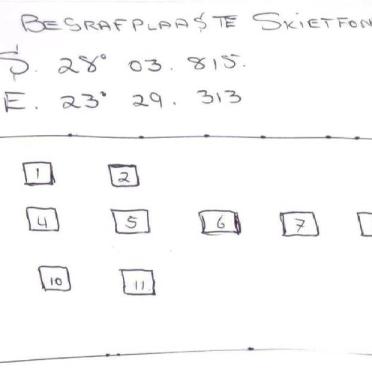 BEGRAFPLAASTE SKIETFON
S. 28° 03. 815.
E. 23° 29. 313
1 2
4 5 6 7
10 11